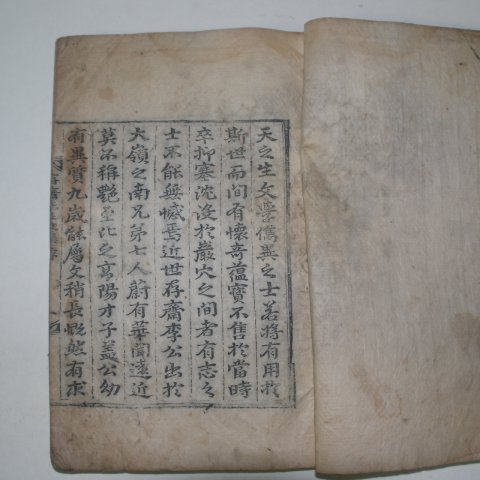 天之生文學儁異之士若將有用於
斯世而間有懷奇蘊寶不售於當時
卒抑塞沈沒於巖穴之間者有志之
士不能無憾焉近世存齋李公出於
大嶺之南兄弟七人蔚有華聞遠近
莫不稱艶至比之高陽才子蓋公幼
有異質九歲能屬文稍長慨然有求